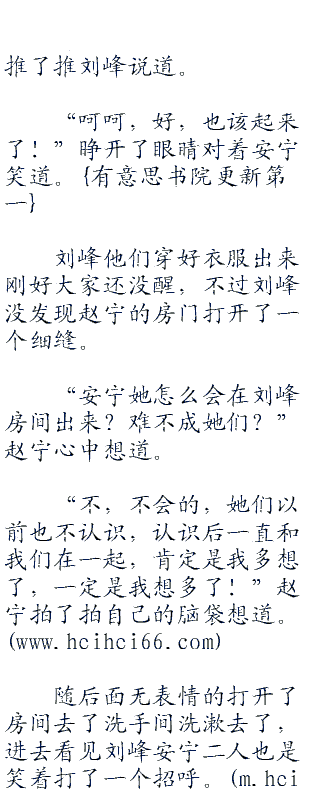 推了推刘峰说道。
“呵呵，好，也该起来
了！”睁开了眼睛对着安宁
笑道。{有意思书院更新第
一}
刘峰他们穿好衣服出来
刚好大家还没醒，不过刘峰
没发现赵宁的房门打开了一
个细缝。
“安宁她怎么会在刘峰
房间出来？难不成她们？”
赵宁心中想道。
“不，不会的，她们以
前也不认识，认识后一直和
我们在一起，肯定是我多想
了，一定是我想多了！”赵
宁拍了拍自己的脑袋想道。
(www.hcihci66.com)
随后面无表情的打开了
房间去了洗手间洗漱去了，
进去看见刘峰安宁二人也是
笑着打了一个招呼。(m.hci